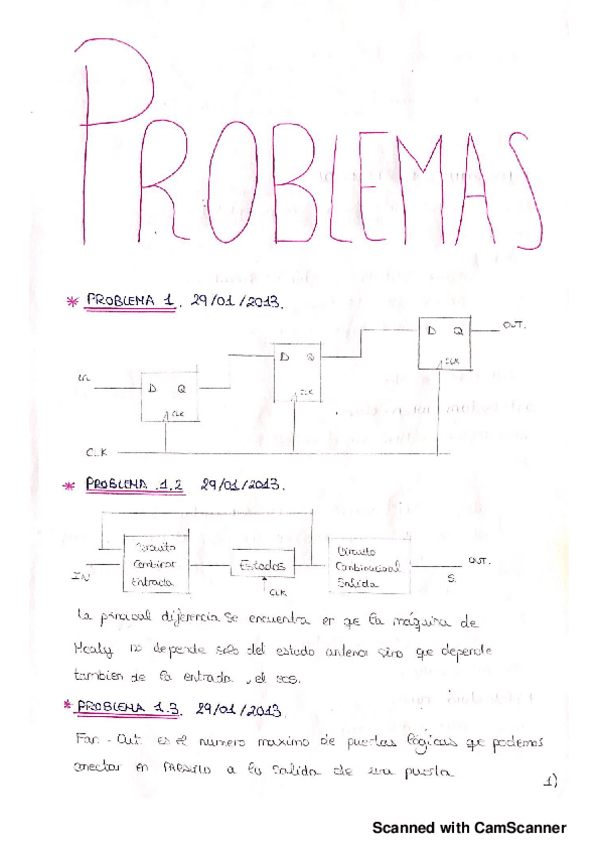 PROBLEMAS
* PROBLEMA 1. 29/01/2013.
D Q OUT.
D Q CLK
IN D Q CLK
CLK
CLK
* PROBLEMA 1.2 29/01/2013.
Circuito Circuito
Combinac Estados Combinacional OUT.
IN Entrada CLK Salida S.
La principal diferencia se encuentra en que la máquina de
Mealy no depende solo del estado anterior sino que depende
tambien de la entrada, el
* PROBLEMA 1.3. 29/01/2013.
Fan-Out es el numero maximo de puertas lógicas que podemos
conectar en a la salida de una puerta
1)
Scanned with CamScanner